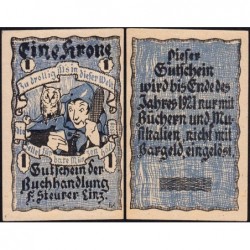 Eine Krone
1 1
So drollig ists in dieser Welt
Gutschein der
Buchhandlung
F. Steurer Linz.
Dieser
Gutschein
wird bis Ende des
Jahres 1921 nur mit
Büchern und Mu-
sikalien, nicht mit
Bargeld, eingelöst.